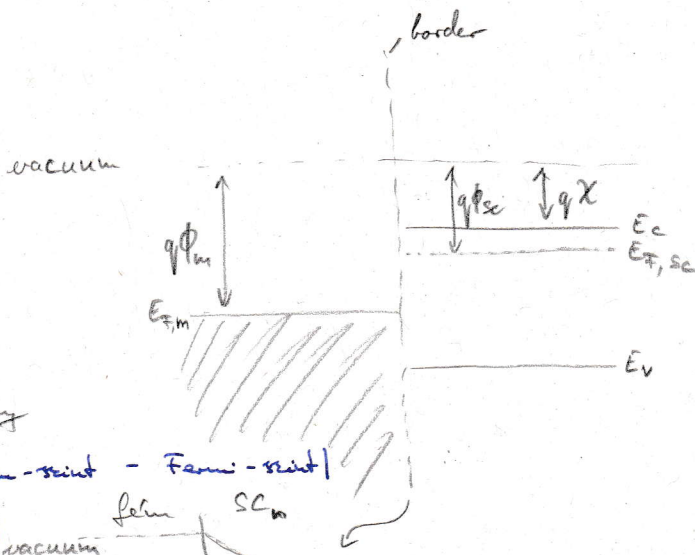 border
vacuum
qΦm
qΦsc
qχ
Ec
EF,sc
EF,m
Ev
-szint - Fermi-szint|
fém SCn
vacuum